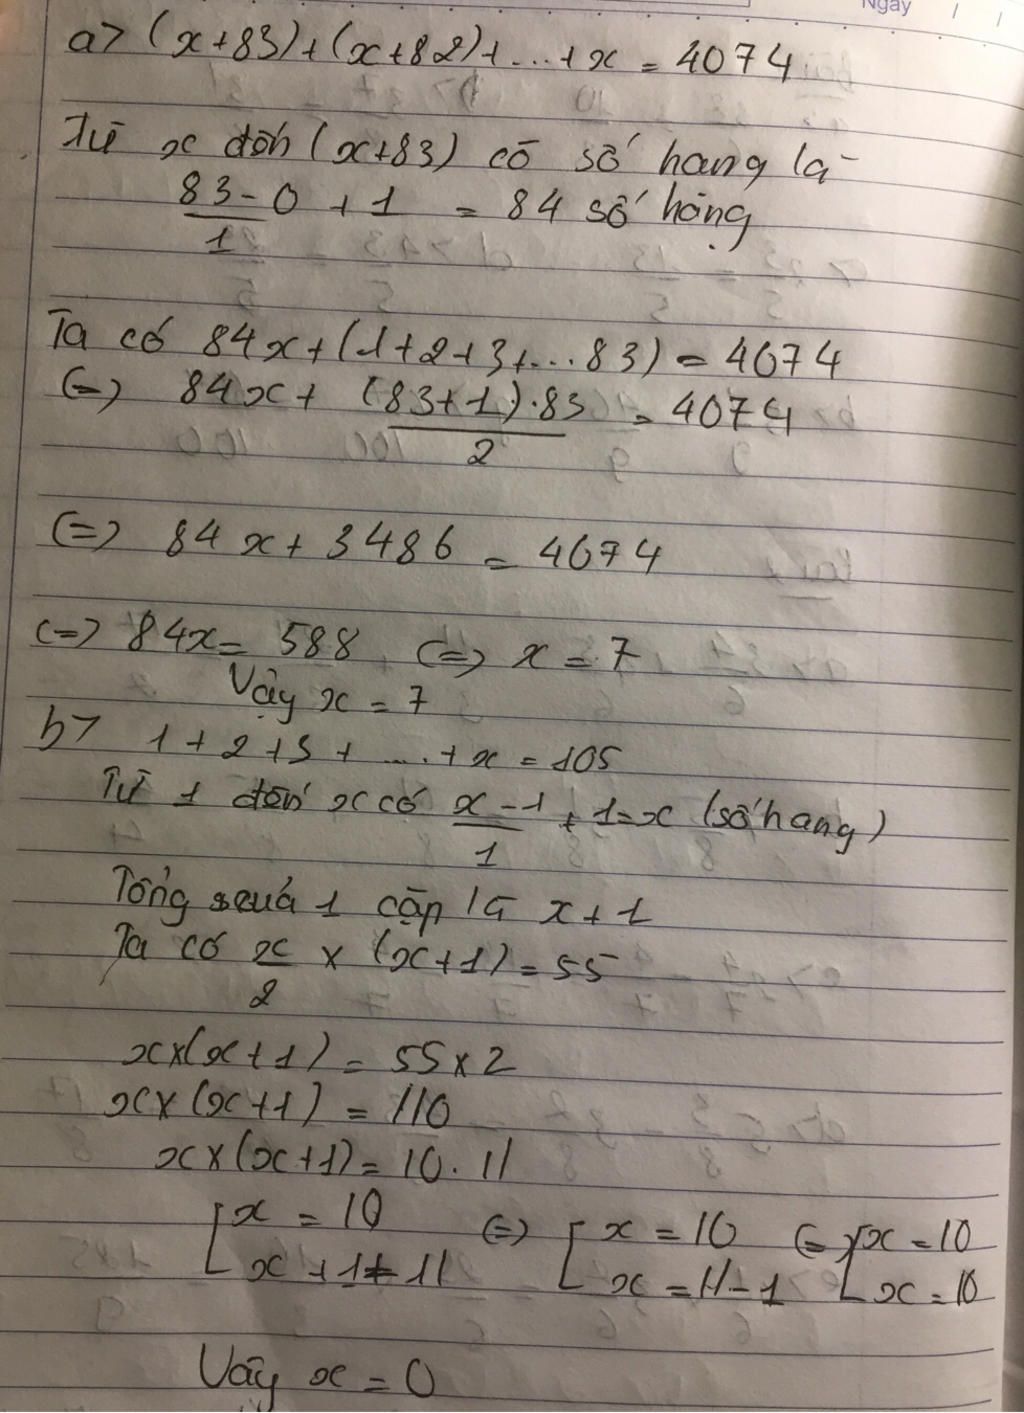 Ngày / /
a> (x+83)+(x+82)+...+x = 4074
Từ x đến (x+83) có số hang là
83-0/1 + 1 = 84 số hạng
Ta có 84x+(1+2+3+...83) = 4074
(=) 84x + (83+1).83/2 = 4074
(=) 84x + 3486 = 4074
(=) 84x = 588 (=) x = 7
Vậy x = 7
b> 1+2+3+....+x = 105
Từ 1 đến x có x-1/1 + 1 = x (số hang)
Tổng 1 cặp là x+1
Ta có x/2 × (x+1) = 55
x×(x+1) = 55×2
x×(x+1) = 110
x×(x+1) = 10.11
[x = 10 (=) [x = 10 (=) [x = 10
x+1 = 11 x = 11-1 x = 10
Vậy x = 0